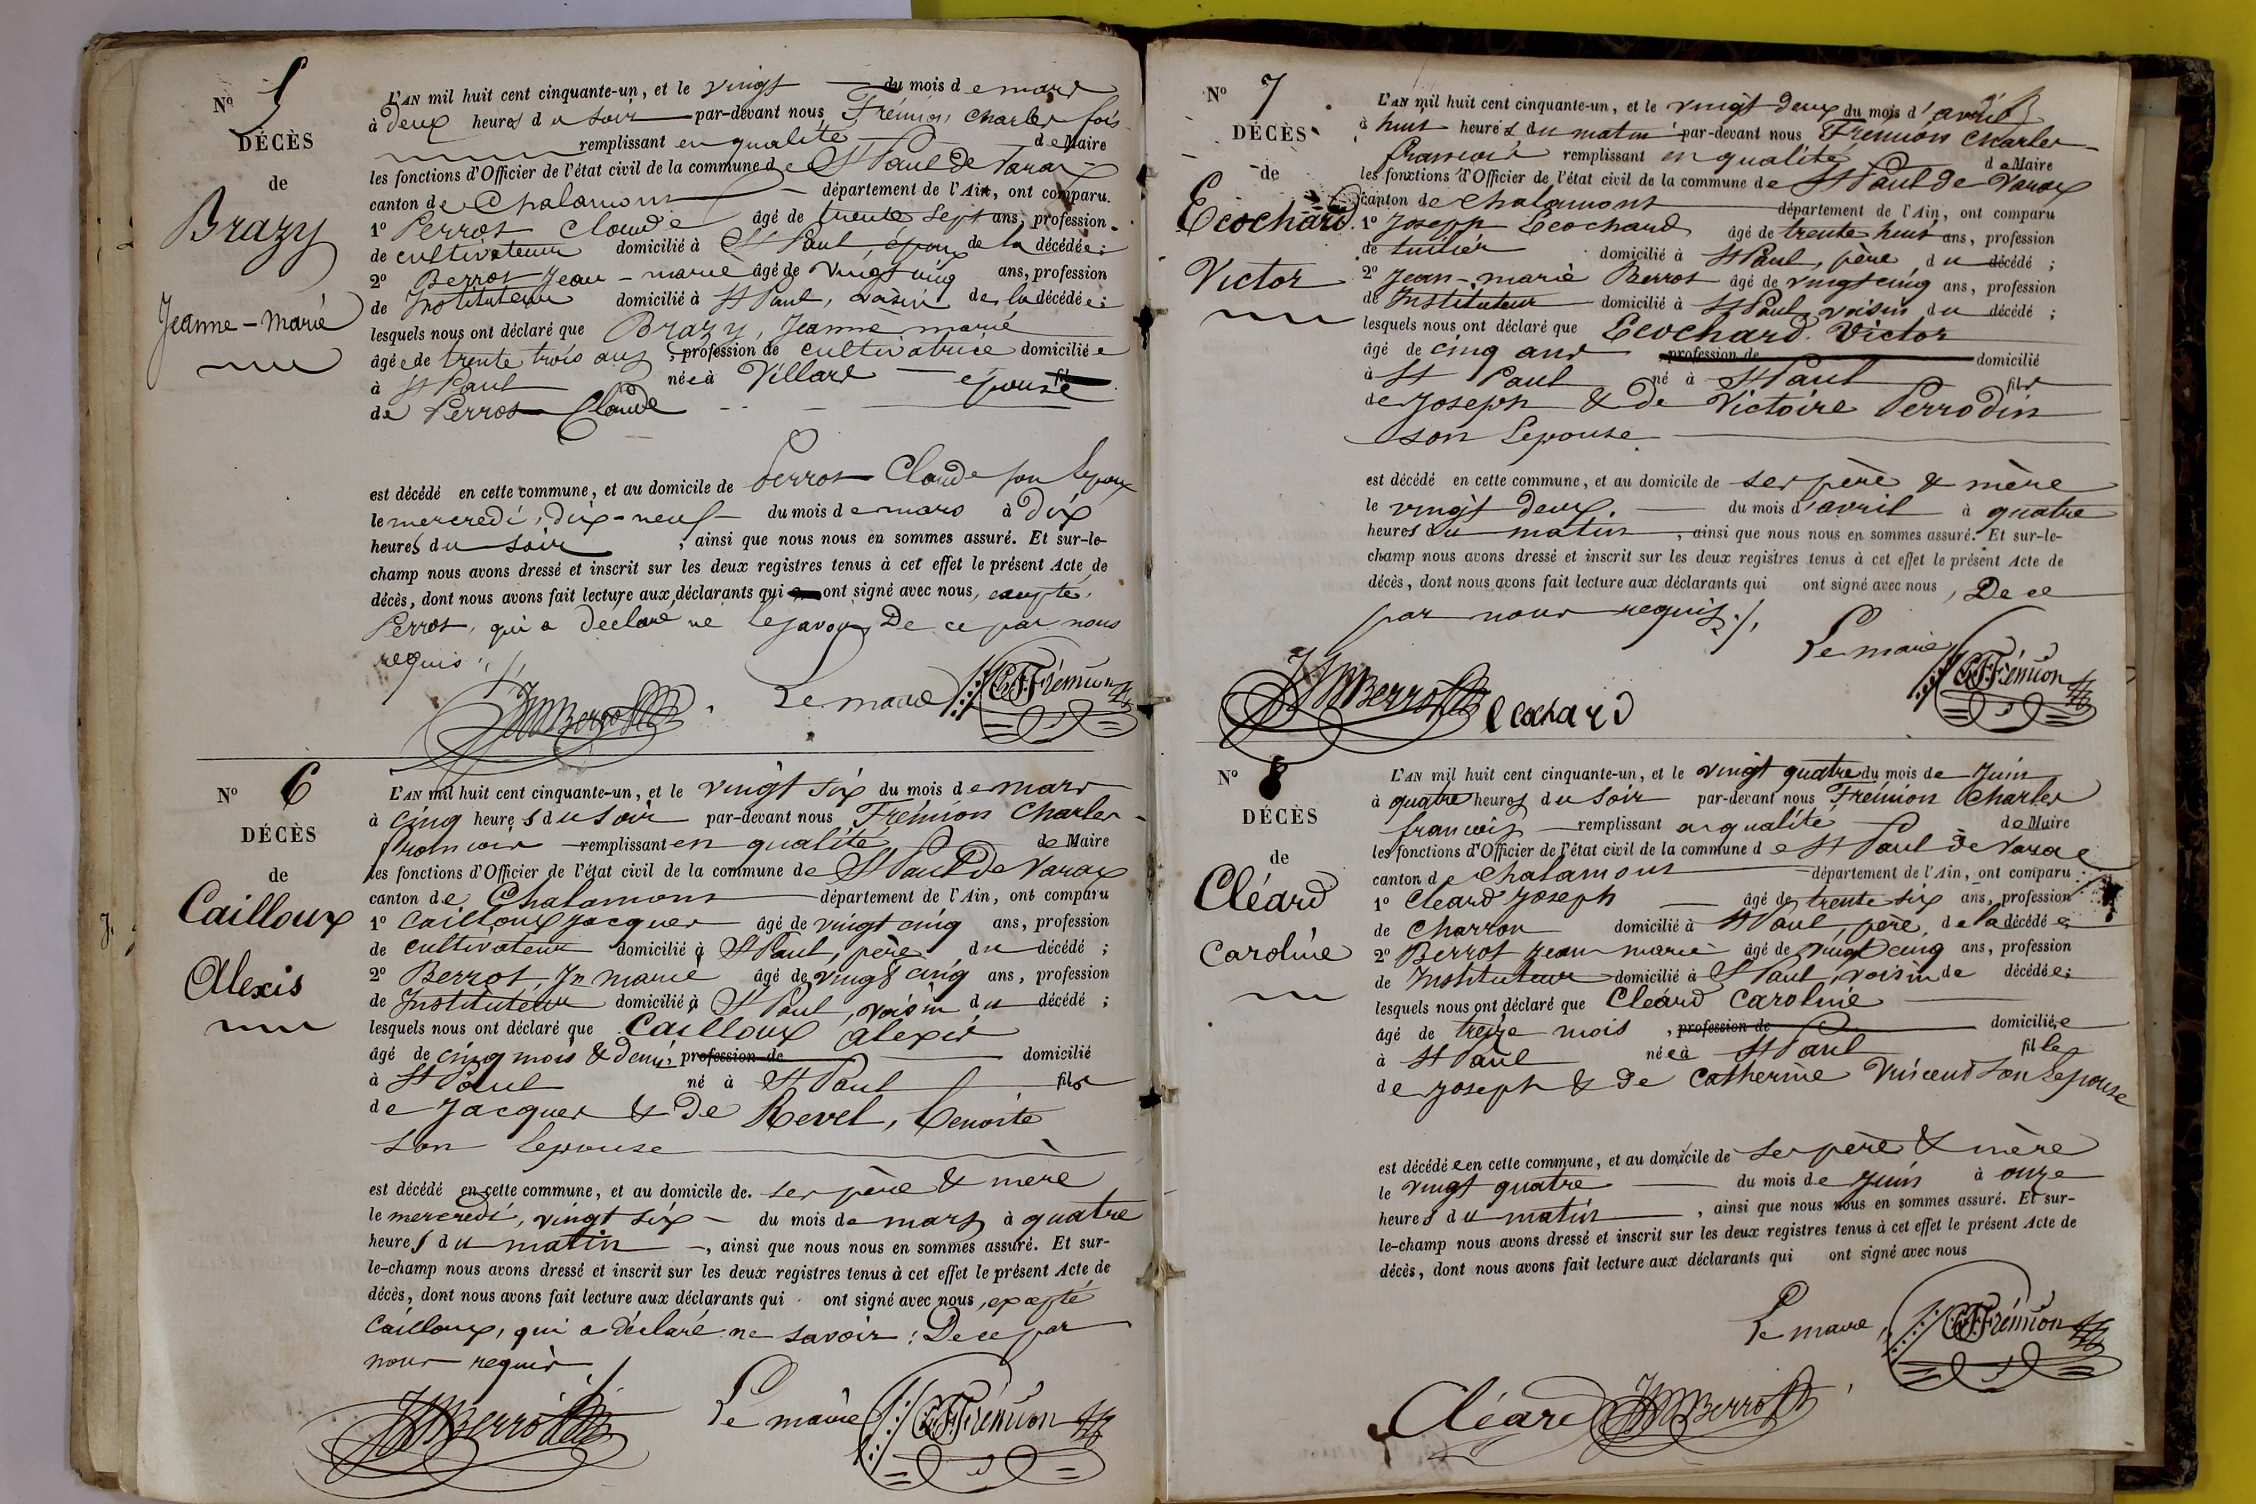 Nº 5
DÉCÈS
de
Brazy
Jeanne-Marie
L'AN mil huit cent cinquante-un, et le vingt du mois de mars
à deux heures du soir par-devant nous Frémion Charles fois
remplissant en qualité de Maire
les fonctions d'Officier de l'état civil de la commune de St Paul de Varax
canton de Chalamont département de l'Ain, ont comparu.
1º Perrot Claude âgé de trente sept ans, profession
de cultivateur domicilié à St Paul, époux de la décédée ;
2º Berrot Jean-marie âgé de vingt cinq ans, profession
de Instituteur domicilié à St Paul, voisin de la décédée ;
lesquels nous ont déclaré que Brazy, Jeanne marie
âgée de trente trois ans, profession de cultivatrice domiciliée
à St Paul née à Villars épouse
de Perrot Claude
est décédé en cette commune, et au domicile de Perrot Claude son Lepoux
le mercredi, dix-neuf du mois de mars à dix
heures du soir, ainsi que nous nous en sommes assuré. Et sur-le-
champ nous avons dressé et inscrit sur les deux registres tenus à cet effet le présent Acte de
décès, dont nous avons fait lecture aux déclarants qui ont signé avec nous, excepté
Perrot, qui a déclaré ne le savoir, De ce par nous
requis ./.
JMBerrot Le maire CFFrémion
Nº 6
DÉCÈS
de
Cailloux
Alexis
L'AN mil huit cent cinquante-un, et le vingt six du mois de mars
à cinq heures du soir par-devant nous Frémion Charles
francois remplissant en qualité de Maire
les fonctions d'Officier de l'état civil de la commune de St Paul de Varax
canton de Chalamont département de l'Ain, ont comparu
1º Cailloux Jacques âgé de vingt cinq ans, profession
de cultivateur domicilié à St Paul, père du décédé ;
2º Berrot, Jn marie âgé de vingt cinq ans, profession
de Instituteur domicilié à St Paul, voisin du décédé ;
lesquels nous ont déclaré que Cailloux alexis
âgé de cinq mois & demi, profession de domicilié
à St Paul né à St Paul fils
de Jacques & de Revel, Benoite
son Lepouse
est décédé en cette commune, et au domicile de ses père & mère
le mercredi, vingt six du mois de mars à quatre
heures du matin, ainsi que nous nous en sommes assuré. Et sur-
le-champ nous avons dressé et inscrit sur les deux registres tenus à cet effet le présent Acte de
décès, dont nous avons fait lecture aux déclarants qui ont signé avec nous, excepté
Cailloux, qui a déclaré ne savoir ; De ce par
nous requis ./.
JMBerrot Le maire CFFrémion
Nº 7
DÉCÈS
de
Ecochard
Victor
L'AN mil huit cent cinquante-un, et le vingt deux du mois d'avril
à huit heures du matin par-devant nous Frémion Charles
francois remplissant en qualité de Maire
les fonctions d'Officier de l'état civil de la commune de St Paul de Varax
canton de Chalamont département de l'Ain, ont comparu
1º Joseph Ecochard âgé de trente huit ans, profession
de tuilier domicilié à St Paul, père du décédé ;
2º Jean-marie Berrot âgé de vingt cinq ans, profession
de Instituteur domicilié à St Paul voisin du décédé ;
lesquels nous ont déclaré que Ecochard Victor
âgé de cinq ans profession de domicilié
à St Paul né à St Paul fils
de Joseph & de Victoire Perrodin
son Lepouse
est décédé en cette commune, et au domicile de ses père & mère
le vingt deux du mois d'avril à quatre
heures du matin, ainsi que nous nous en sommes assuré. Et sur-le-
champ nous avons dressé et inscrit sur les deux registres tenus à cet effet le présent Acte de
décès, dont nous avons fait lecture aux déclarants qui ont signé avec nous, De ce
par nous requis ./.
Le maire CFFrémion
JMBerrot Ecochard
Nº 8
DÉCÈS
de
Cléard
Caroline
L'AN mil huit cent cinquante-un, et le vingt quatre du mois de Juin
à quatre heures du soir par-devant nous Frémion Charles
francois remplissant en qualité de Maire
les fonctions d'Officier de l'état civil de la commune de St Paul de Varax
canton de Chalamont département de l'Ain, ont comparu
1º Cléard Joseph âgé de trente six ans, profession
de Charron domicilié à St Paul, père, de la décédée ;
2º Berrot Jean marie âgé de vingt cinq ans, profession
de Instituteur domicilié à St Paul, voisin de décédée ;
lesquels nous ont déclaré que Cléard Caroline
âgé de treize mois, profession de domiciliée
à St Paul née à St Paul fille
de Joseph & de Catherine Vincent son Lepouse
est décédée en cette commune, et au domicile de ses père & mère
le vingt quatre du mois de Juin à onze
heures du matin, ainsi que nous nous en sommes assuré. Et sur-
le-champ nous avons dressé et inscrit sur les deux registres tenus à cet effet le présent Acte de
décès, dont nous avons fait lecture aux déclarants qui ont signé avec nous
Le maire, CFFrémion
Cléard JMBerrot